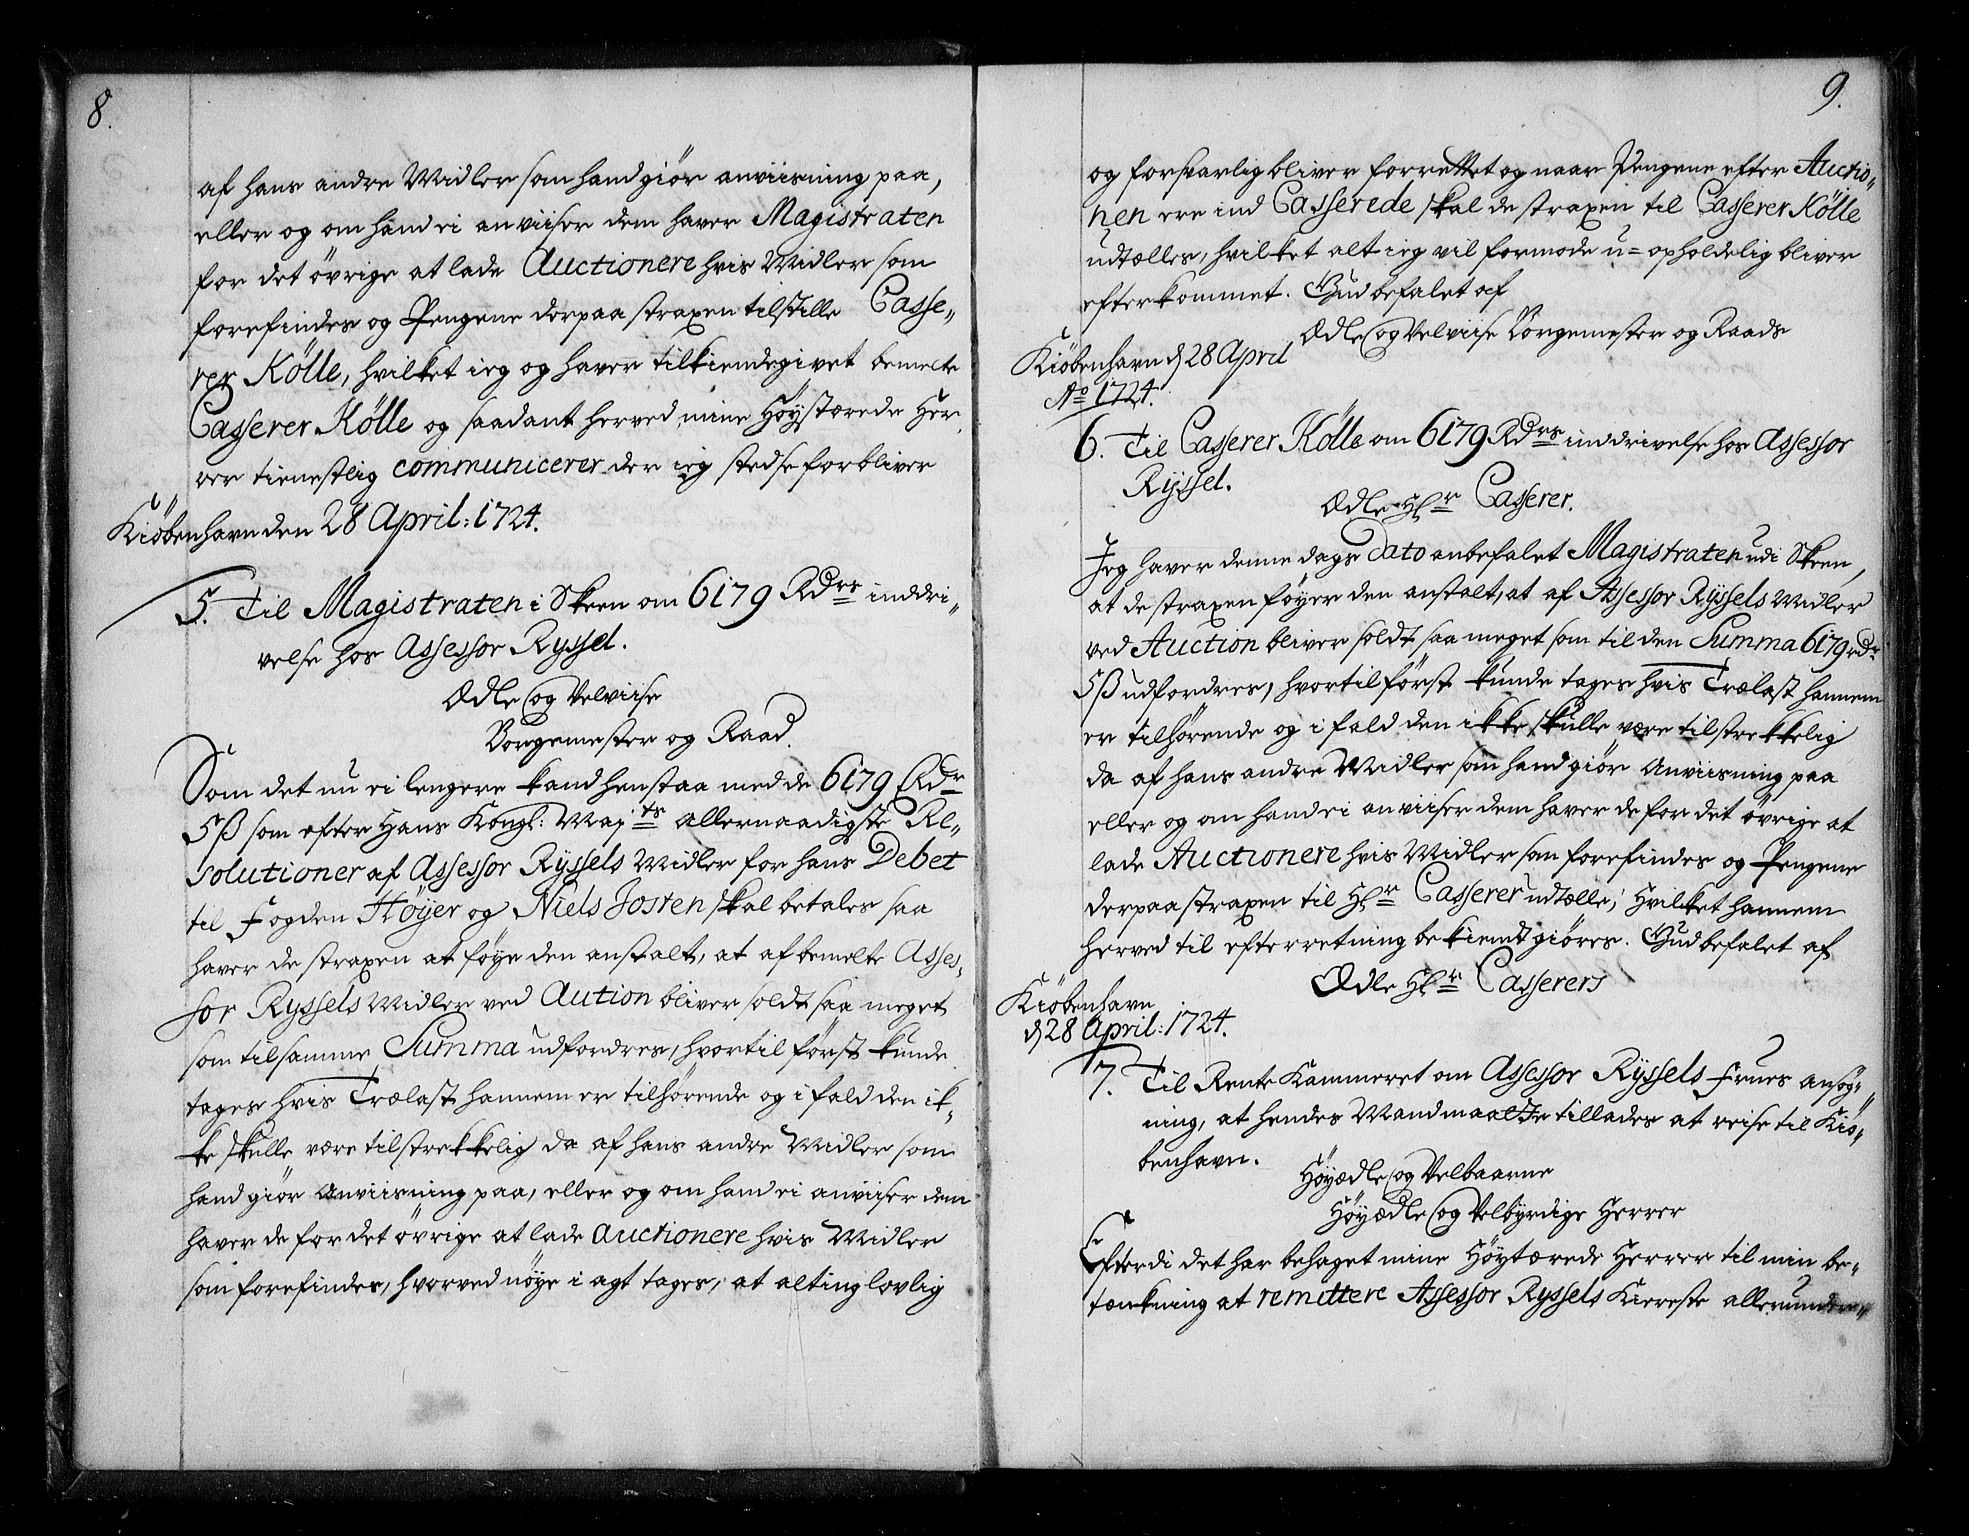 8.
af hans andre Midler som hand giör anviisning paa,
eller og om hand ei anviiser dem haver Magistraten
for det övrige at lade Auctionere hvis Midler som
forefindes og Pengene derpaa straxen tilstille Casse„
rer Kölle, hvilket ieg og haver tilkiendegivet bemelte
Casserer Kölle og saadant herved mine Höystærede Her„
rer tienestlig communicerer der ieg stedse forbliver
Kiöbenhavn den 28 April: 1724.
5. Til Magistraten i Skeen om 6179 Rdrs inddri„
velse hos Assessor Ryssel.
Ædle og Velviise
Borgemester og Raad.
Som det nu ei lengere kand henstaa med de 6179 Rdr
5ß som efter Hans Kongl: May:ts allernaadigste Re„
solutioner af Assessor Ryssels Midler for hans Debet
til Fogden Höyer og Niels Josten skal betales saa
haver de straxen at föye den anstalt, at af bemelte Asses„
sor Ryssels Midler ved Aution bliver soldt saa meget
som til samme Summa udfordres, hvortil först kunde
tages hvis Trælast hannem er tilhörende og i fald den ik„
ke skulle være tilstrekkelig da af hans andre Midler som
hand giör Anviisning paa, eller og om hand ei anviiser dem
haver de for det övrige at lade Auctionere hvis Midler
som forefindes, hvorved nöye i agt tages, at alting lovlig
9.
og forsvarlig bliver forrettet og naar Pengene efter Auctio„
nen ere ind Casserede skal de straxen til Casserer Kölle
udtælles, hvilket alt ieg vil formode u=opholdelig bliver
efterkommet. Gud befalet af
Ædle og Velviise Borgemester og Raads
Kiöbenhavn d 28 April
Ao 1724.
6. Til Casserer Kölle om 6179 Rdrs inddrivelse hos Assessor
Ryssel.
Ædle Hr Casserer.
Jeg haver denne dags Dato anbefalet Magistraten udi Skeen,
at de straxen föyer den anstalt, at af Assessor Ryssels Midler
ved Auction bliver soldt saa meget som til den Summa 6179 rdr
5ß udfordres, hvortil först kunde tages hvis Trælast hannem
er tilhörende og i fald den ikke skulle være tilstrekkelig
da af hans andre Midler som hand giör Anviisning paa
eller og om hand ei anviiser dem haver de for det övrige at
lade Auctionere hvis Midler som forefindes og Pengene
derpaa straxen til Hr Casserer udtælle, Hvilket hannem
herved til efterretning bekiendtgiöres. Gud befalet af
Ædle Hr Casserers
Kiöbenhavn
d 28 April: 1724.
7. Til Rente Kammeret om Assessor Ryssels Frues ansög„
ning, at hendes Mand maatte tillades at reise til Kiö„
benhavn.
Höyædle og Velbaarne
Höyædle og Velbyrdige Herrer
Efterdi det har behaget mine Höytærede Herrer til min be„
tænkning at remittere Assessor Ryssels Kiereste allerunder„